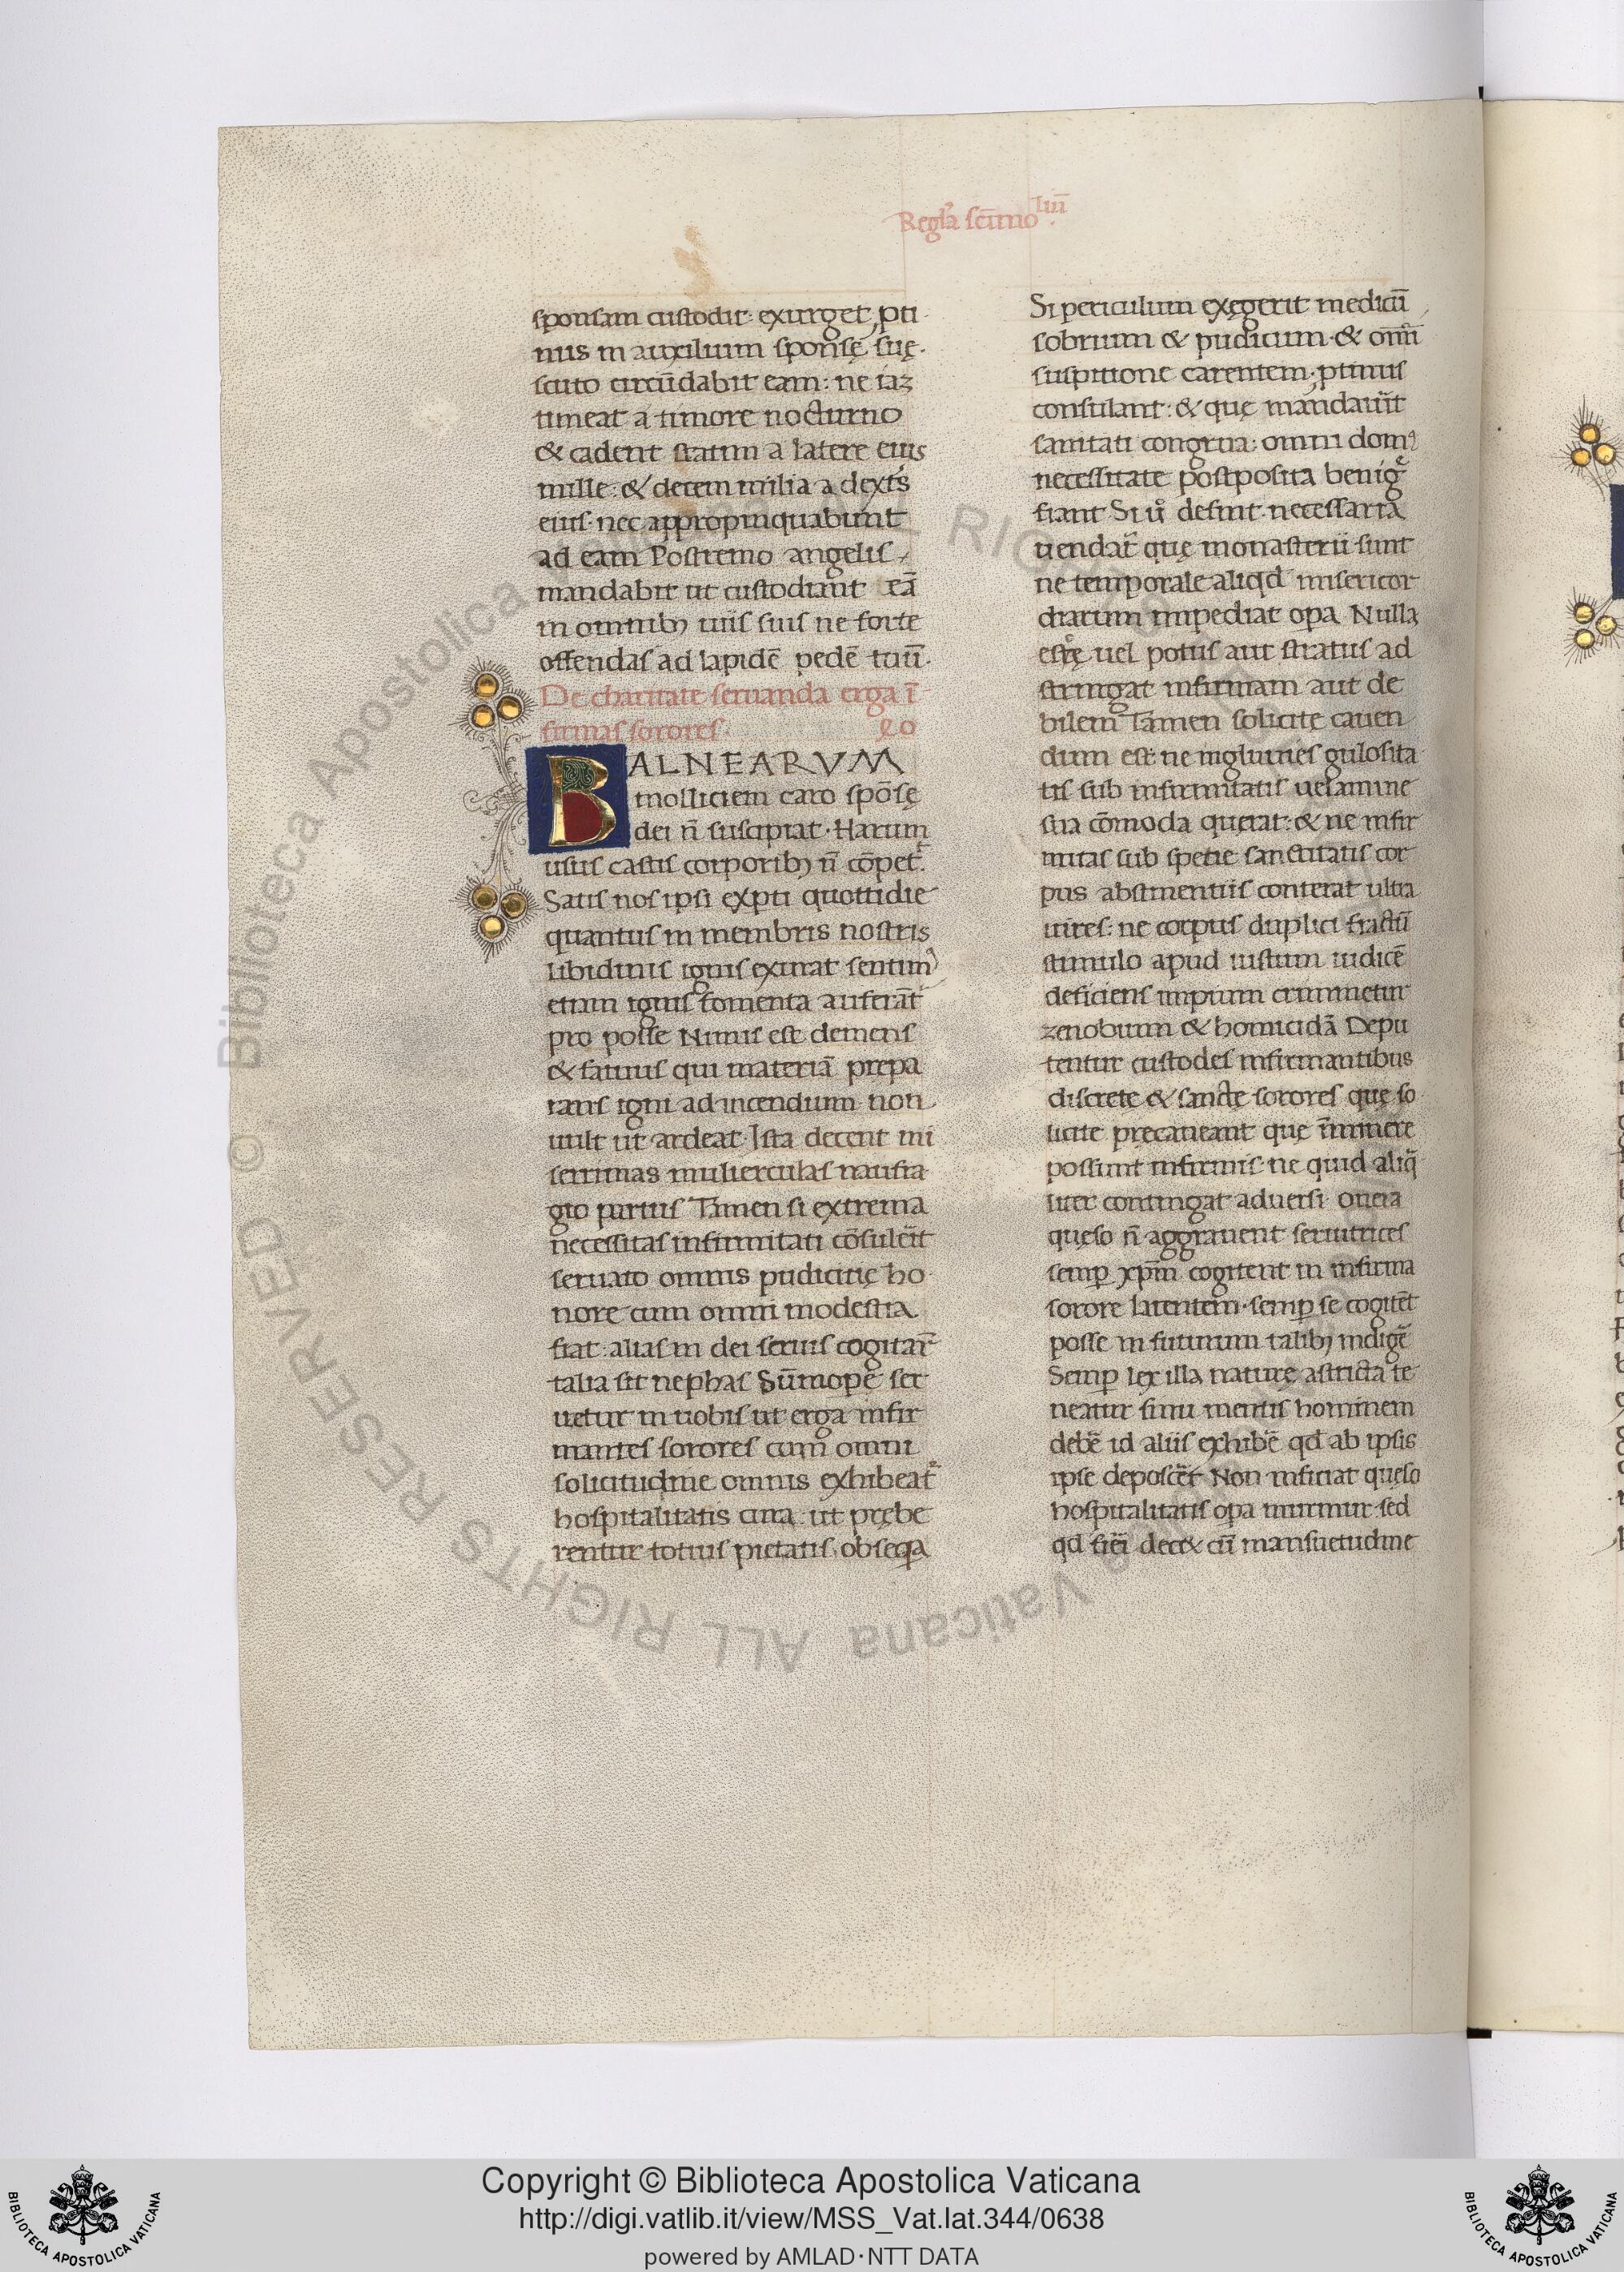 Regl̄a ſcīmo liiii
sponsam custodit: exurget, pti
nus in auxilium sponsę suę.
scuto circūdabit eam: ne iaz
timeat a timore nocturno
& cadent statim a latere eius
mille: & decem milia a dextˢ
eius· nec appropinquabunt
ad eam Postremo angelis
mandabit ut custodiant eā
in omnibꝫ uiis suis ne forte
offendas ad lapidē pedē tuū.
De charitate seruanda erga ī
firmas sorores
BALNEARVM
molliciem caro spōsę
dei n̄ suscipiat· Harum
usus castis corporibꝫ n̄ cōpet̄.
Satis nos ipsi expti quottidie
quantus in membris nostris
libidinis ignis exurat sentimꝰ
etiam ignis fomenta auferāt
pro posse Nimis est demens
& fatuus qui materiā prepa
rans igni ad incendium non
uult ut ardeat· Ista decent mi
serrimas mulierculas naufra
gio partus Tamen si extrema
necessitas infirmitati cōsulēit
seruato omnis pudicitię ho
nore cum omni modestia
fiat: alias in dei seruis cogitar̄
talia sit nephas Sūmope ser
uetur in uobis ut erga infir
mantes sorores cum omni
solicitudine omnis exhibeat̄
hospitalitatis cura: ut prębe
rentur totius pietatis obseqa
Si periculum exegerit medicū
sobrium & pudicum· & omī
suspitione carentem· ptinus
consulant: & quę mandauīt
sanitati congrua: omni domꝰ
necessitate postposita benigᵉ
fiant Si uº desint necessaria
uendar̄ quę monasterii sunt
ne temporale aliqd misericor
diarum impediat opa Nulla
uel potus aut stratus ad
stringat infirmam aut de
bilem Tamen solicite cauen
dum est: ne ingluuies gulosita
tis sub infirmitatis uelamine
sua cōmoda querat: & ne infir
mitas sub spetie sanctitatis cor
pus abstinentiis conterat ultra
uires: ne corpus duplici fractū
stimulo apud iustum iudicē
deficiens impium criminetur
zenobium & homicidā Depu
tentur custodes infirmantibus
discrete & sanctę sorores quę so
licite precaueant que īminere
possunt infirmis· ne quid aliq̄
liter contingat aduersi Oneia
quęso n̄ aggrauent seruitrices
semp xp̄m cogitent in infirma
sorore latentem· semp se cogitēt
posse in futurum talibꝫ indigē
Semp lex illa naturę astricta te
neatur sinu mentis hominem
debē id aliis exhibē qd ab ipsis
ipse deposcēt Non inficiat quęso
hospitalitatis opa murmur· sed
qd fiēi decet cū mansuetudine
© Biblioteca Apostolica Vaticana ALL RIGHTS RESERVED
Copyright © Biblioteca Apostolica Vaticana
http://digi.vatlib.it/view/MSS_Vat.lat.344/0638
powered by AMLAD·NTT DATA
BIBLIOTECA APOSTOLICA VATICANA
BIBLIOTECA APOSTOLICA VATICANA